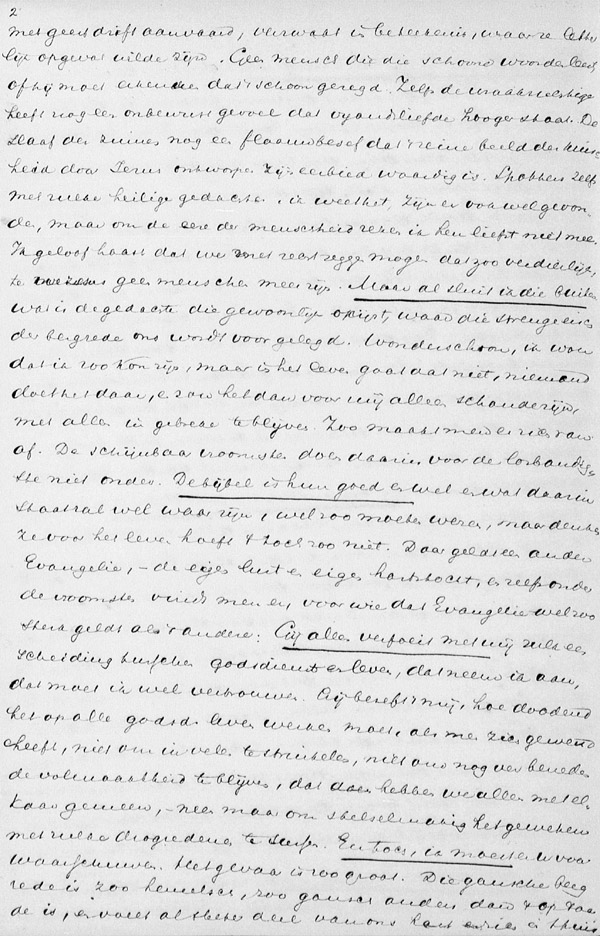 2
met geestdrift aanvaard, verwacht in beteekenis, waar ze lette
lijk opgevat wilde zijn. Ieder mensch die die schoone woorden leest
of hij moet erkennen dat 't schoon gezegd. Zelfs de wraakzuchtige
heeft nog een onbewust gevoel dat vijandsliefde hooger staat. De
slaaf der zinnen nog een flauw besef dat 't reine beeld der kuisch
heid door Jezus ontworpen zijn eerbied waardig is. Spotters zelfs
met zulke heilige gedachten, ik weet het, zijn er voor wel gevon
den, maar om de eere der menschheid reken ik hen liefst niet mee.
Ik geloof haast dat we met recht zeggen mogen dat zoo verdierlijkte
wezens geen menschen meer zijn. Maar al sluit ik die buiten
wat is de gedachte die gewoonlijk oprijst, waar die strenge eisch
der bergrede ons wordt voorgelegd. Wonderschoon, ik wou
dat ik zoo kon zijn, maar in het leven gaat dat niet, niemand
doet het daar, en zou het dan voor mij alleen schande zijn,
met allen in gebreke te blijven. Zoo maakt men er zich van
af. De schijnbaar vroomsten doen daarin voor de losbandig
ste niet onder. De bijbel is hun goed en wel en wat daarin
staat zal wel waar zijn, wel zoo moeten wezen, maar denken
ze voor het leven hoeft 't toch zoo niet. Daar geldt een ander
Evangelie, – de eigen lust en eigen hartstocht, en zelfs onder
de vroomsten vindt men er, voor wie dat Evangelie wel zoo
sterk geldt als 't andere: Gij allen verfoeit met mij zulk een
scheiding tusschen godsdienst en leven, dat neem ik aan,
dat moet ik wel vertrouwen. Gij beseft 't mij, hoe doodend
het op alle godsd. leven werken moet, als men zich gewend
heeft, niet om in velen te struikelen, niet om nog ver beneden
de volmaaktheid te blijven, dat doen hebben we allen met el
kaar gemeen, – neen maar om stelselmatig het geweten
met zulke drogredenen te sussen. En toch, ik moest er u voor
waarschuwen. Het gevaar is zoo groot. Die gansche berg
rede is zoo hemelsch, zoo gansch anders dan 't op aar
de is, en voert al steeds deel van ons hart en